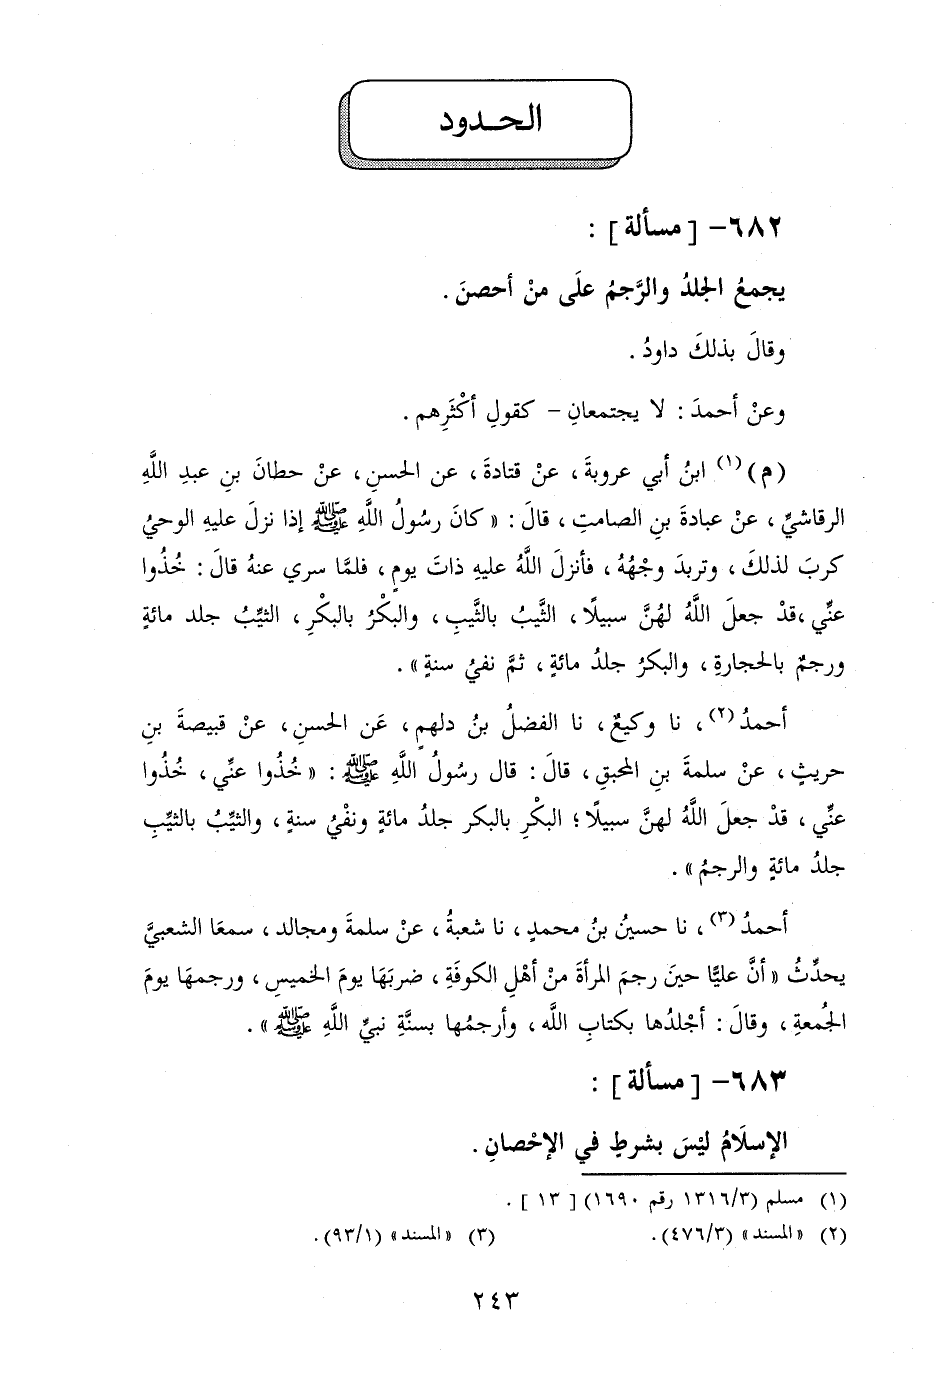 الحدود
٦٨٢- [مسألة] :
يجمعُ الجلدُ والرَّجمُ علَى منْ أحصنَ .
وقالَ بذلكَ داودُ .
وعنْ أحمدَ : لا يجتمعانِ - كقولِ أكْثَرِهم .
(م)(١) ابنُ أبي عروبةَ ، عنْ قتادةَ ، عن الحسنِ ، عنْ حطانَ بنِ عبدِ اللَّهِ
الرقاشيِّ ، عنْ عبادةَ بنِ الصامتِ ، قالَ : « كانَ رسُولُ اللَّهِ ﷺ إذا نزلَ عليهِ الوحيُ
كربَ لذلكَ ، وتربدَ وجْهُهُ ، فأنزلَ اللَّهُ عليهِ ذاتَ يومٍ ، فلمَّا سري عنهُ قالَ : خُذُوا
عنِّي ،قدْ جعلَ اللَّهُ لهُنَّ سبيلًا ، الثَّيبُ بالثَّيبِ ، والبكْرُ بالبكْرِ ، الثيِّبُ جلد مائةٍ
ورجمٌ بالحجارةِ ، والبكرُ جلدُ مائةٍ ، ثمَّ نفيُ سنةٍ » .
أحمدُ(٢) ، نا وكيعٌ ، نا الفضلُ بنُ دلهمٍ ، عَن الحسنِ ، عنْ قبيصةَ بنِ
حريثٍ ، عنْ سلمةَ بنِ المحبقِ ، قالَ : قال رسُولُ اللَّهِ ﷺ : « خُذُوا عنِّي ، خُذُوا
عنِّي ، قدْ جعلَ اللَّهُ لهنَّ سبيلًا ؛ البكْرِ بالبكر جلدُ مائةٍ ونفْيُ سنةٍ ، والثيِّبُ بالثيِّبِ
جلدُ مائةٍ والرجمُ » .
أحمدُ(٣) ، نا حسينُ بنُ محمدٍ ، نا شعبةُ ، عنْ سلمةَ ومجالد ، سمعَا الشعبيَّ
يحدِّثُ « أنَّ عليًّا حينَ رجمَ المرأةَ منْ أهْلِ الكوفَةِ ، ضربَهَا يومَ الخميسِ ، ورجمهَا يومَ
الجُمعةِ ، وقالَ : أجْلدُها بكتابِ اللَّه ، وأرجمُها بسنَّةِ نبيِّ اللَّهِ ﷺ » .
٦٨٣- [مسألة] :
الإسلَامُ ليْسَ بشرطٍ في الإحْصانِ .
(١) مسلم (١٣١٦/٣ رقم ١٦٩٠) [١٣] .
(٢) «المسند» (٤٧٦/٣). (٣) «المسند» (٩٣/١).
٢٤٣